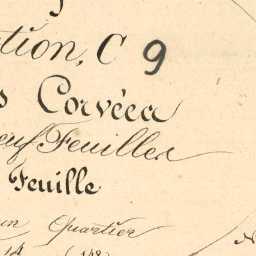 tion, C 9
s Corvées
euf Feuilles
Feuille
un Quartier
14